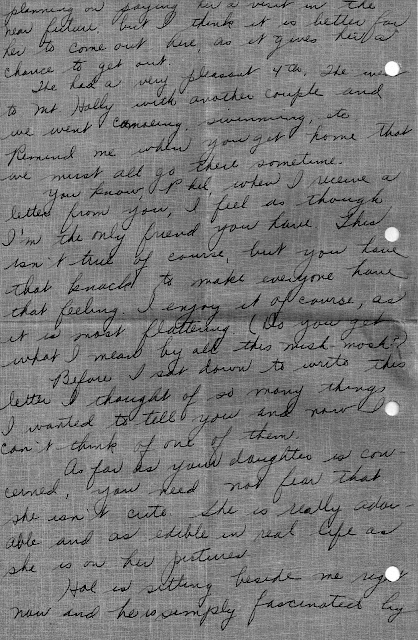 planning on paying her a visit in the
near future, but I think it is better for
her to come out here, as it gives her a
chance to get out.
We had a very pleasant 4th. We went
to Mt Holly with another couple and
we went canoeing, swimming, etc
Remind me when you get home that
we must all go there sometime.
You know, Phil, when I receive a
letter from you, I feel as though
I'm the only friend you have. This
isn't true of course, but you have
that knack to make everyone have
that feeling. I enjoy it of course, as
it is most flattering (Do you get
what I mean by all this mish-mosh?)
Before I sat down to write this
letter I thought of so many things
I wanted to tell you and now I
can't think of one of them.
As far as your daughter is con-
cerned, you need not fear that
she isn't cute. She is really ador-
able and as edible in real life as
she is on her pictures
Hal is sitting beside me right
now and he is simply fascinated by